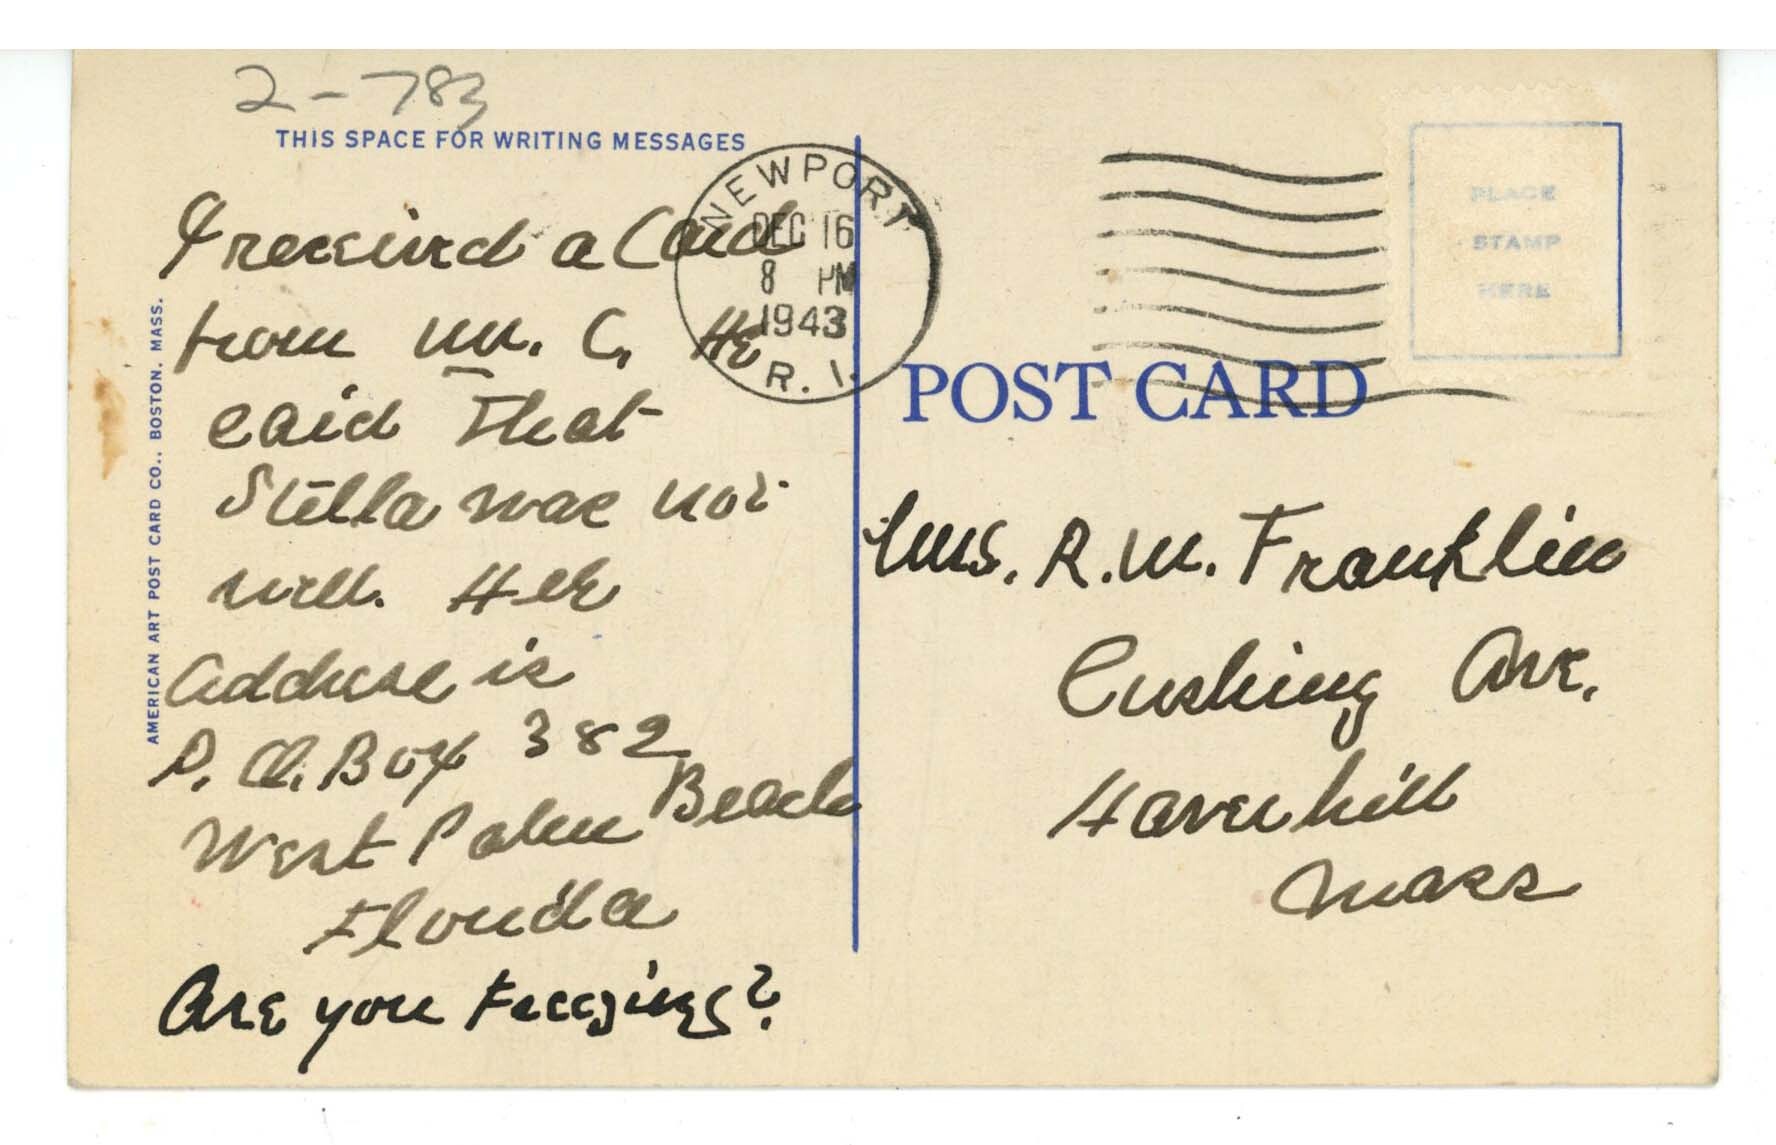 2-783
THIS SPACE FOR WRITING MESSAGES
I received a Card
from Mr. C. He
said That
Stella was not
well. Her
address is
P.O. Box 382
West Palm Beach
Florida
Are you Freezing?
AMERICAN ART POST CARD CO., BOSTON, MASS.
NEWPORT
DEC 16
8 PM
1943
R.I.
PLACE
STAMP
HERE
POST CARD
Mrs. R.W. Franklin
Cushing Ave.
Haverhill
Mass